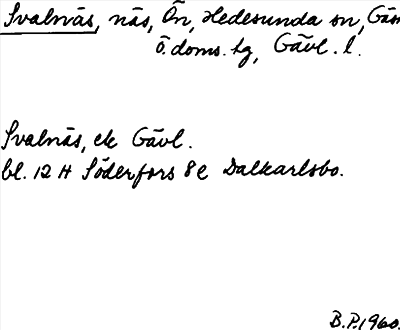 Svalnäs, näs, Ön, Hedesunda sn, Gäs
Ö. doms. hg, Gävl. l.
Svalnäs, ek Gävl.
bl. 12 H Söderfors 8 e Dalkarlsbo.
B.P. 1960.